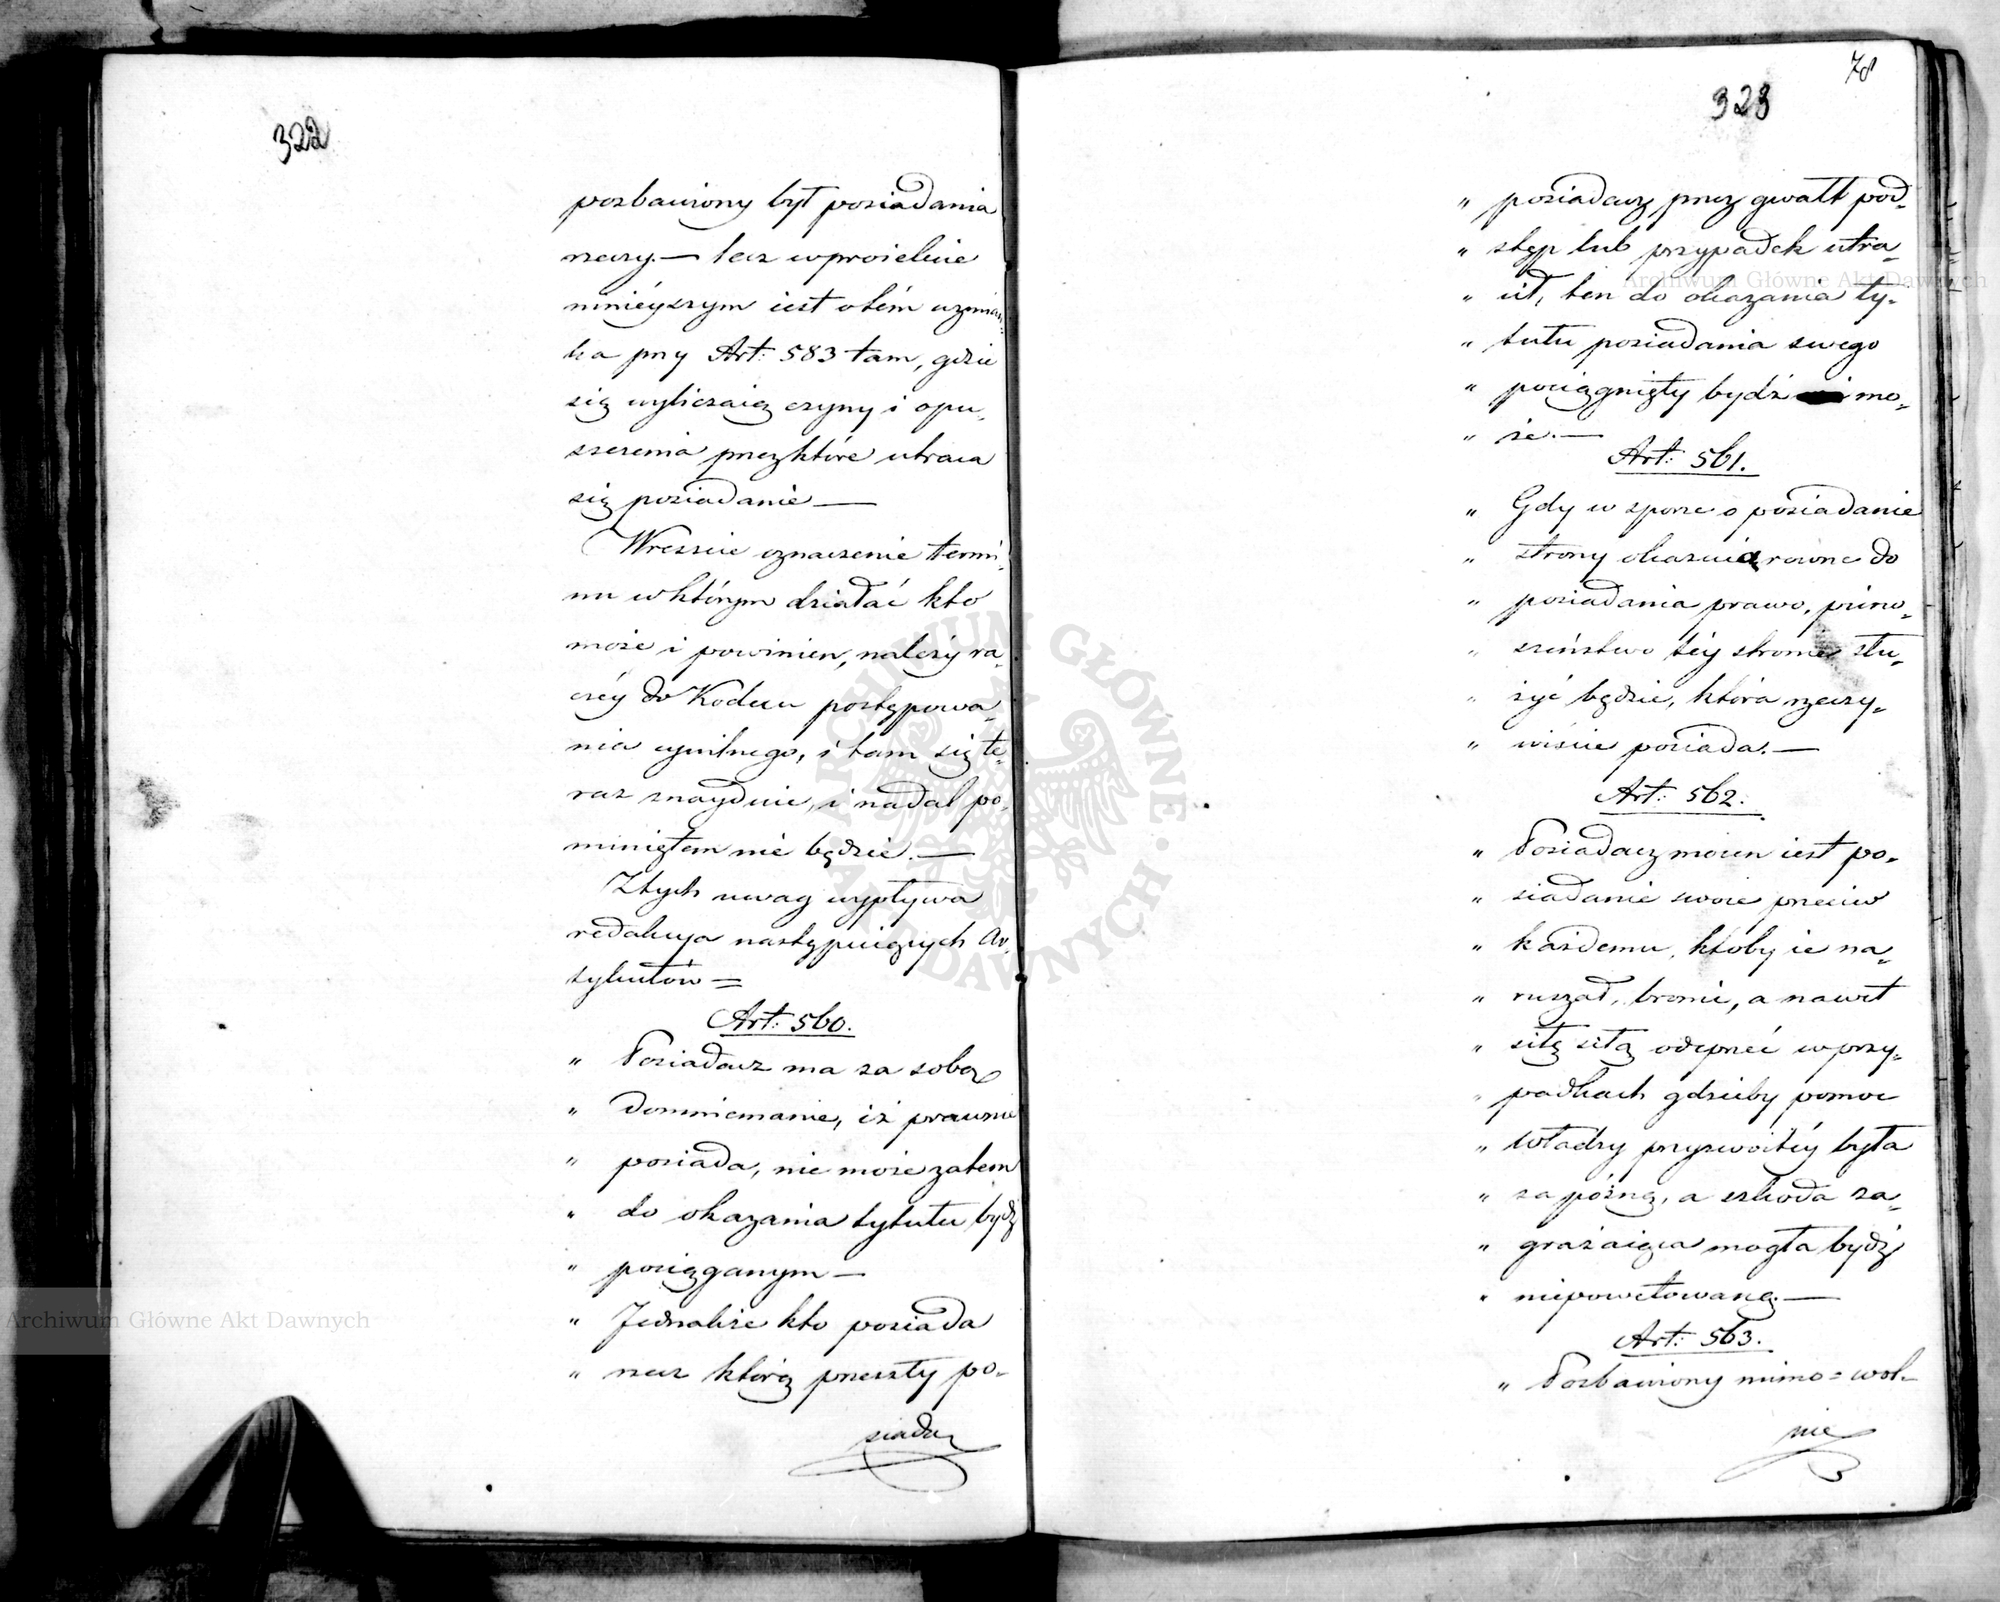 322
pozbawiony był posiadania
rzeczy. — lecz w proiekcie
ninieyszym iest o tém wzmian-
ka przy Art: 583 tam, gdzie
się wyliczaią czyny i opu-
szczenia przez które utraca
się posiadanie —
Wreszcie oznaczenie termi-
nu w którym działać kto
może i powinien, należy ra-
czéy do Kodexu postępowa-
nia cywilnego, i tam się te-
raz znayduie, i nadal po-
miniętem nie będzie. —
Z tych uwag wypływa
redakcya następuiących Ar-
tykułów =
Art: 560.
" Posiadacz ma za sobą
" domniemanie, iż prawnie
" posiada, nie może zatem
" do okazania tytułu bydź
" pociąganym —
" Jednakże kto posiada
" rzecz którą przeszły po-
siadacz
78
323
" posiadacz przez gwałt pod-
" stęp lub przypadek utra-
" cił, ten do okazania ty-
" tułu posiadania swego
" pociągnięty bydź mo-
" że. —
Art: 561.
" Gdy w sporze o posiadanie
" strony okazuią równe do
" posiadania prawo, pierw-
" szeństwo téy stronie słu-
" żyć będzie, która rzeczy-
" wiście posiada. —
Art: 562.
" Posiadacz mocen iest po-
" siadanie swoie przeciw
" każdemu, ktoby ie na-
" ruszał, bronić, a nawet
" siłę siłą odeprzeć w przy-
" padkach gdzieby pomoc
" władzy przyzwoitéy była
" za późną, a szkoda za-
" grażaiąca mogła bydź
" niepowetowaną. —
Art: 563.
" Pozbawiony mimo = wol-
nie
Archiwum Główne Akt Dawnych
Archiwum Główne Akt Dawnych
ARCHIWUM GŁÓWNE AKT DAWNYCH